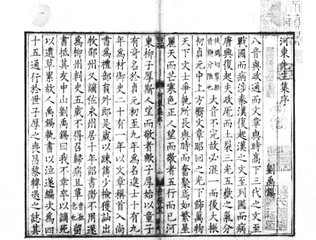 河東先生集序
劉禹錫
八音與政通而文章與時高下三代之文至
戰國而病涉秦漢復起漢之文至列國而病
唐興復起夫政厖而土裂三光五嶽之氣分
大音不完故必混一而後大振初
貞元中上方嚮文章昭回之光下飾萬物
天下文士爭執所長與時而奮粲焉如繁星
麗天而芒寒色正人望而敬者五行而已河
東柳子厚斯人望而敬者歟子厚始以童子
有奇名於貞元初至九年為名進士十有九
年為材御史二十有一年以文章稱首入尚
書為禮部員外郎是歲以疎雋少檢獲訕出
牧邵州又謫佐永州居十年詔書徵不用遂
為柳州刺史五歲不得召歸病且革留
書抵其友中山劉禹錫曰我不幸卒以謫死
以遺草累故人禹錫執書以泣遂編次為四
十五通行於世子厚之喪昌黎韓退之誌其